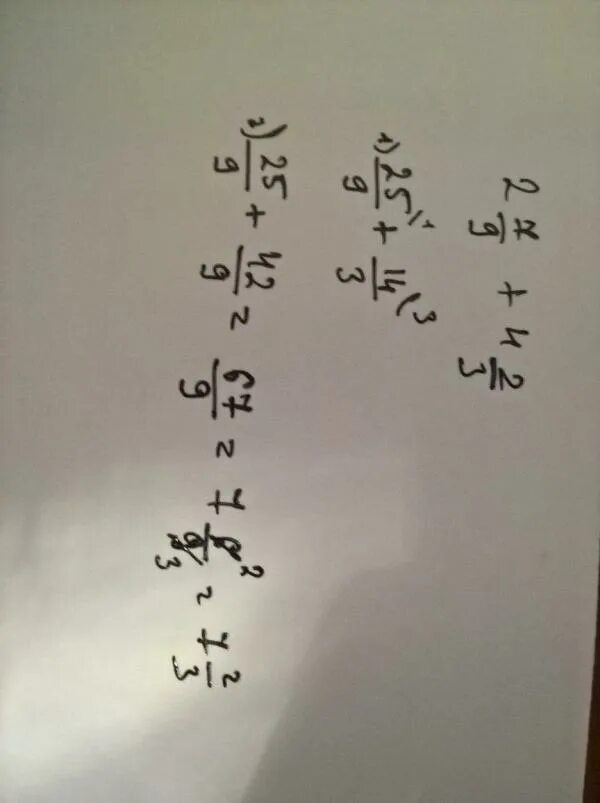 2 7/9 + 4 2/3
1) 25/9 \1 + 14/3 \3
2) 25/9 + 42/9 = 67/9 = 7 6/9 2 3 = 7 2/3